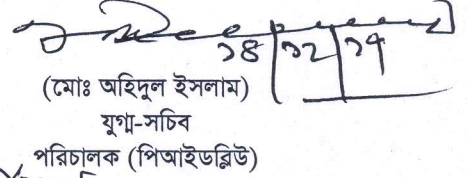 ১৪|১২|১৭
(মোঃ অহিদুল ইসলাম)
যুগ্ম-সচিব
পরিচালক (পিআইডব্লিউ)